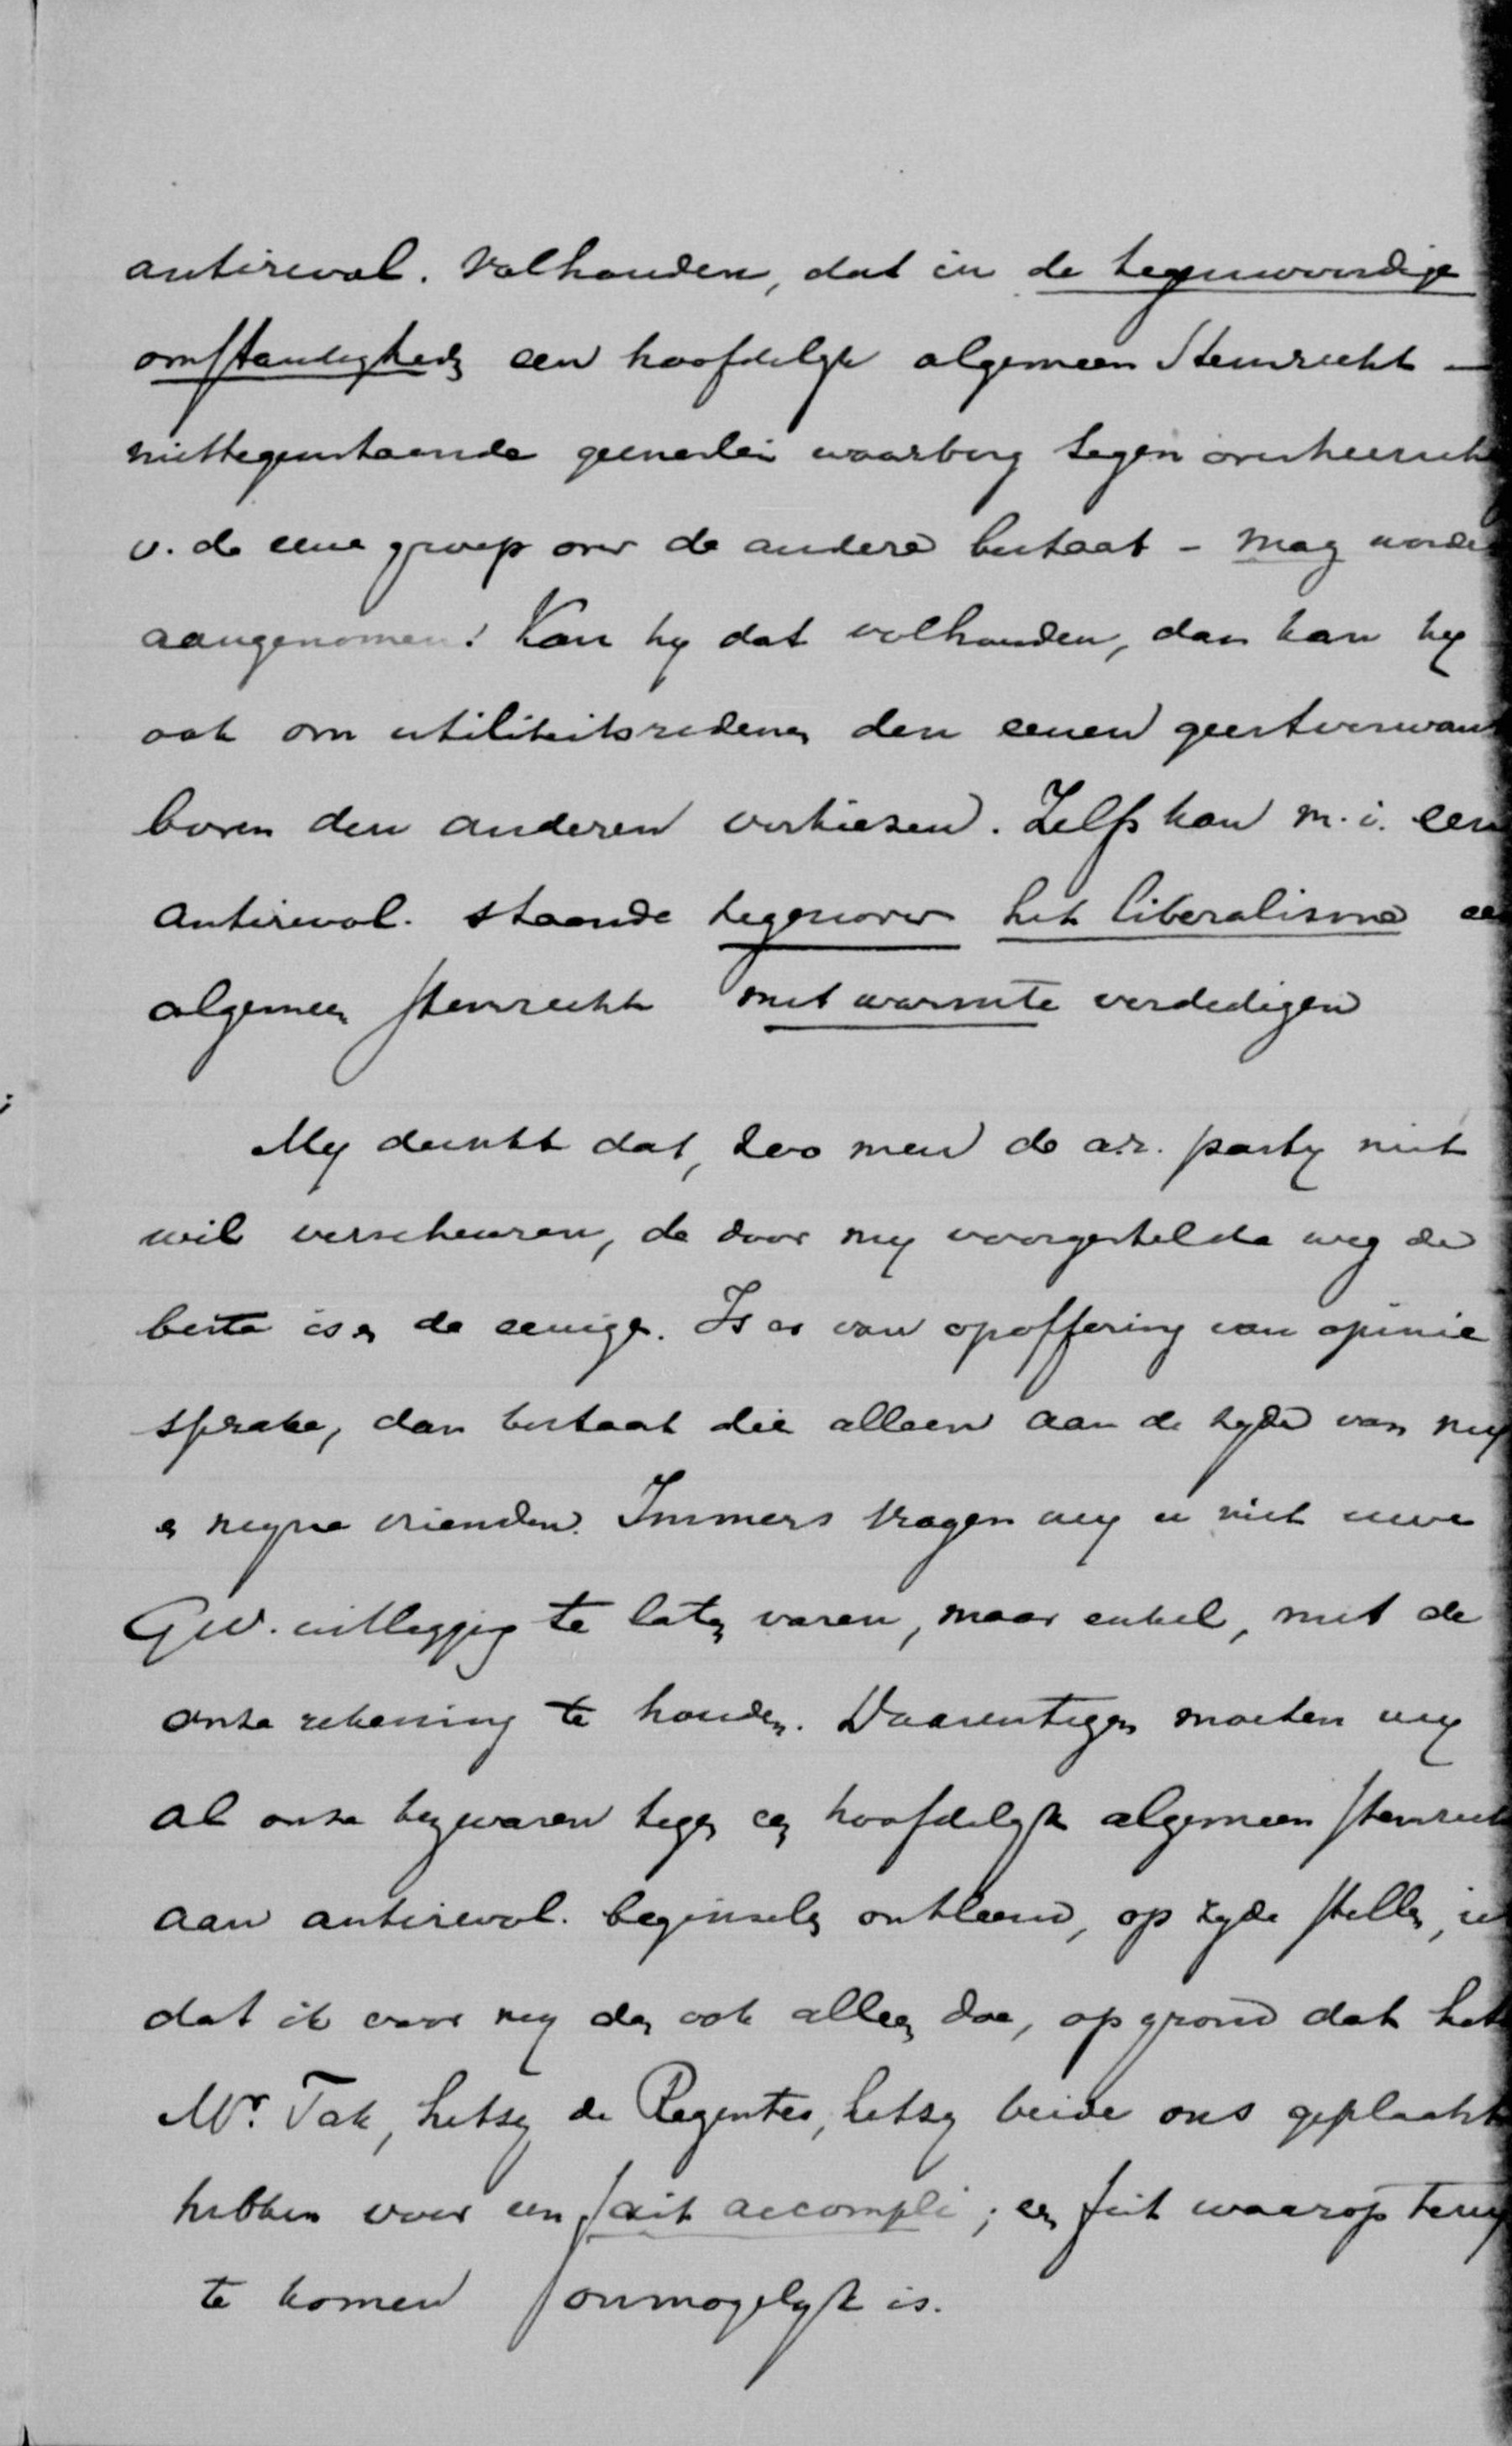 antirevol. volhouden, dat in de tegenwoordige
omstandigheden een hoofdelijk algemeen stemrecht –
niettegenstaande geenerlei waarborg tegen overheersch
v. de eene groep over de andere bestaat – mag worde
aangenomen! Kan hy dat volhouden, dan kan hy
ook om utiliteitsredenen den eenen geestverwant
boven den anderen verkiezen. Zelfs kan m.i. een
antirevol. staande tegenover het liberalisme ee
algemeen stemrecht met warmte verdedigen
My dunkt dat, zoo men de a.r. party niet
wil verscheuren, de door my voorgestelde weg de
beste is en de eenige. Is er van opoffering van opinie
sprake, dan bestaat die alleen aan de zyde van my
en myne vrienden. Immers vragen wy u niet uwe
GW. uitlegging te laten varen, maar enkel, met de
onze rekening te houden. Daarentegen moeten wy
al onze bezwaren tegen een hoofdelyk algemeen stemrech
aan antirevol. beginselen ontleend, op zyde stellen,
dat ik voor my dan ook alleen doe, op grond dat het
Mr. Tak, hetzy de Regentes, hetzy beide ons geplaatst
hebben voor een fait accompli; een feit waarop terug
te komen onmogelyk is.